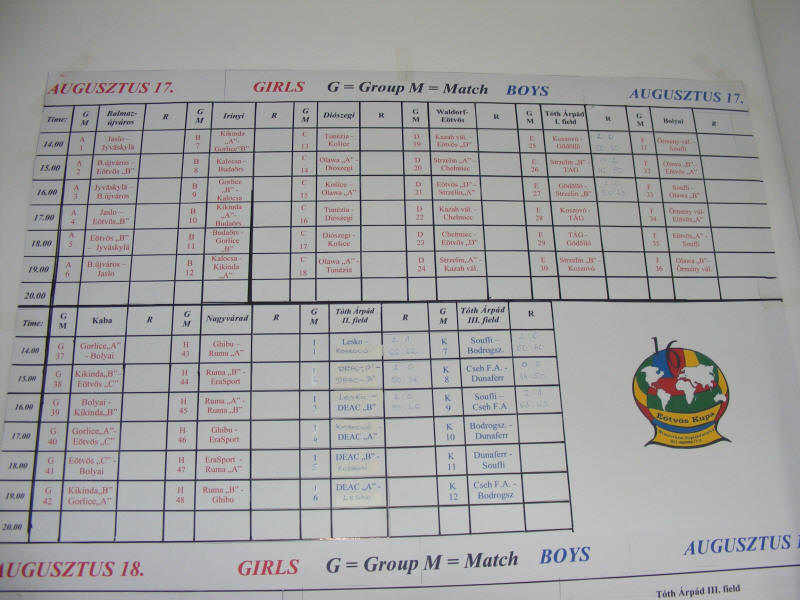 AUGUSZTUS 17. GIRLS G = Group M = Match BOYS AUGUSZTUS 17.
Time: G M Balmaz-újváros R G M Irínyi R G M Diószegi R G M Waldorf-Eötvös R G M Tóth Árpád I. field R G M Bolyai R
14.00 A 1 Jaslo – Jyväskylä B 7 Kikinda „A”- Gorlice”B” C 13 Tunézia - Diószegi D 19 Kazah vál. – Eötvös „D” E 25 Koszovó - Gödöllő 2:0 F 31 Örmény vál.- Soufli
15.00 A 2 B.újváros – Eötvös „B” B 8 Kalocsa - Budaörs C 14 Olawa „A”- Diószegi D 20 Strzelin „A”- Chelmiec E 26 Strzelin „B”- TÁG F 32 Olawa „B” - Eötvös „A”
16.00 A 3 Jyväskylä – B.újváros B 9 Gorlice „B” - Kalocsa C 15 Košice – Olawa „A” D 21 Eötvös „D” - Strzelin„A” E 27 Gödöllő - Strzelin „B” F 33 Soufli – Olawa „B”
17.00 A 4 Jaslo – Eötvös „B” B 10 Kikinda „A”- Budaörs C 16 Tunézia - Diószegi D 22 Kazah vál. - Chelmiec E 28 Koszovó - TÁG F 34 Örmény vál- Eötvös „A”
18.00 A 5 Eötvös „B” – Jyväskylä B 11 Budaörs - Gorlice „B” C 17 Diószegi - Košice D 23 Chelmiec - Eötvös „D” E 29 TÁG - Gödöllő F 35 Eötvös„A” - Soufli
19.00 A 6 B.újváros – Jaslo B 12 Kalocsa - Kikinda „A” C 18 Olawa „A” - Tunézia D 24 Strzelin„A” - Kazah vál. E 30 Strzelin „B” - Koszovó F 36 Olawa „B”– Örmény vál.
20.00
Time: G M Kaba R G M Nagyvárad R G M Tóth Árpád II. field R G M Tóth Árpád III. field R
14.00 G 37 Gorlice„A” - Bolyai H 43 Ghibu - Ruma „A” I 1 Lesko – Koszovó 2:1 K 7 Soufli – Bodrogsz. 2:0 50:40
15.00 G 38 Kikinda„B”– Eötvös „C” H 44 Ruma „B” - EraSport DEAC „A” - DEAC „B” 2:0 K 8 Cseh F.A. - Dunaferr
16.00 G 39 Bolyai - Kikinda„B” H 45 Ruma „A” - Ruma „B” Lesko – DEAC „B” 2:0 K 9 Soufli – Cseh F.A
17.00 G 40 Gorlice„A” - Eötvös „C” H 46 Ghibu - EraSport Koszovó - DEAC „A” K 10 Bodrogsz. - Dunaferr
18.00 G 41 Eötvös „C” - Bolyai H 47 EraSport - Ruma „A” DEAC „B” - Koszovó K 11 Dunaferr - Soufli
19.00 G 42 Kikinda„B” Gorlice„A” H 48 Ruma „B” - Ghibu I 6 DEAC „A” - Lesko K 12 Cseh F.A. - Bodrogsz
20.00
16
Eötvös Kupa
AUGUSZTUS 18. GIRLS G = Group M = Match BOYS AUGUSZTUS 1
Tóth Árpád III. field